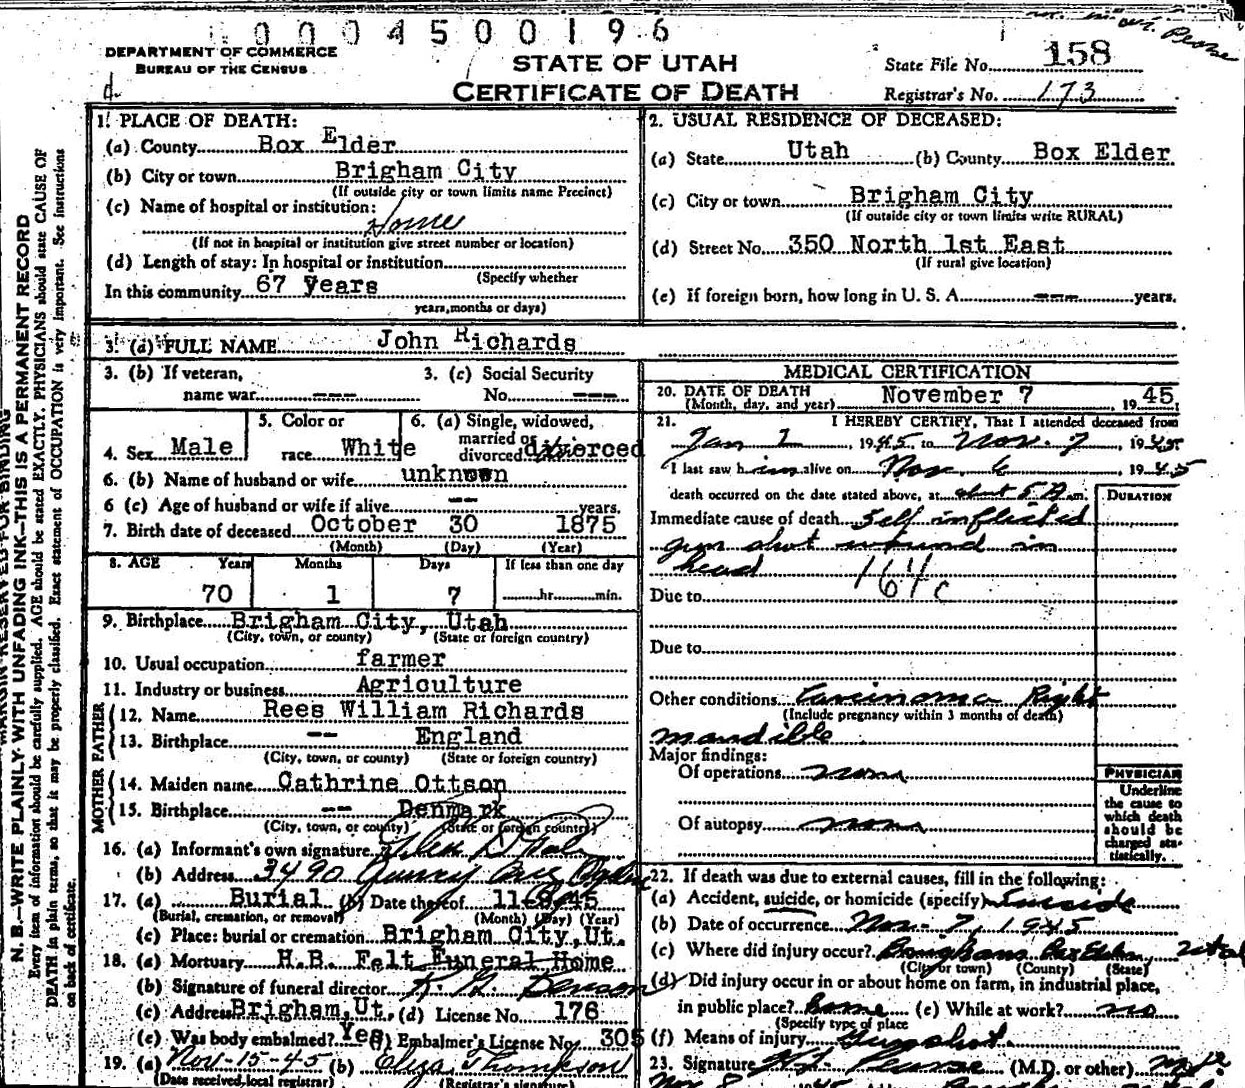 0004500196
DEPARTMENT OF COMMERCE
BUREAU OF THE CENSUS
STATE OF UTAH
CERTIFICATE OF DEATH
State File No. 158
Registrar's No. 173
1. PLACE OF DEATH:
(a) County Box Elder
(b) City or town Brigham City
(If outside city or town limits name Precinct)
(c) Name of hospital or institution:
Home
(If not in hospital or institution give street number or location)
(d) Length of stay: In hospital or institution
(Specify whether
In this community 67 years
years, months or days)
2. USUAL RESIDENCE OF DECEASED:
(a) State Utah (b) County Box Elder
(c) City or town Brigham City
(If outside city or town limits write RURAL)
(d) Street No. 350 North 1st East
(If rural give location)
(e) If foreign born, how long in U. S. A. --- years.
3. (a) FULL NAME John Richards
3. (b) If veteran, name war ---
3. (c) Social Security No. ---
4. Sex Male
5. Color or race White
6. (a) Single, widowed, married or divorced divorced
6. (b) Name of husband or wife unknown
6 (c) Age of husband or wife if alive -- years.
7. Birth date of deceased October 30 1875
(Month) (Day) (Year)
8. AGE Years Months Days If less than one day
70 1 7 hr. min.
9. Birthplace Brigham City, Utah
(City, town, or county) (State or foreign country)
10. Usual occupation farmer
11. Industry or business Agriculture
FATHER
12. Name Rees William Richards
13. Birthplace -- England
(City, town, or county) (State or foreign country)
MOTHER
14. Maiden name Cathrine Ottson
15. Birthplace -- Denmark
(City, town, or county) (State or foreign country)
16. (a) Informant's own signature
(b) Address 3490 Ave Ogden
17. (a) Burial (b) Date thereof 11-8-45
(Burial, cremation, or removal) (Month) (Day) (Year)
(c) Place: burial or cremation Brigham City, Ut.
18. (a) Mortuary H.B. Felt Funeral Home
(b) Signature of funeral director
(c) Address Brigham, Ut. (d) License No. 176
(e) Was body embalmed? Yes (f) Embalmer's License No. 305
19. (a) Nov-15-45 (b) Eliza Thompson
(Date received local registrar) (Registrar's signature)
MEDICAL CERTIFICATION
20. DATE OF DEATH November 7, 1945
(Month, day, and year)
21. I HEREBY CERTIFY, That I attended deceased from
Jan 1, 1945 to Nov. 7 1945
I last saw him alive on Nov. 6 1945
death occurred on the date stated above, at about 5 A m.
DURATION
Immediate cause of death Self inflicted
gun shot wound in
head 164c
Due to
Due to
Other conditions Carcinoma Right
(Include pregnancy within 3 months of death)
mandible
Major findings:
Of operations none
Of autopsy none
PHYSICIAN
Underline
the cause to
which death
should be
charged sta-
tistically.
22. If death was due to external causes, fill in the following:
(a) Accident, suicide, or homicide (specify) Suicide
(b) Date of occurrence Nov. 7, 1945
(c) Where did injury occur? Brigham Box Elder, Utah
(City or town) (County) (State)
(d) Did injury occur in or about home on farm, in industrial place,
in public place? home (e) While at work? no
(Specify type of place
(f) Means of injury Gunshot.
23. Signature (M.D. or other) M.D.
N. B.—WRITE PLAINLY WITH UNFADING INK—THIS IS A PERMANENT RECORD
Every item of information should be carefully supplied. AGE should be stated EXACTLY. PHYSICIANS should state CAUSE OF
DEATH in plain terms, so that it may be properly classified. Exact statement of OCCUPATION is very important. See instructions
on back of certificate.
MARGIN RESERVED FOR BINDING